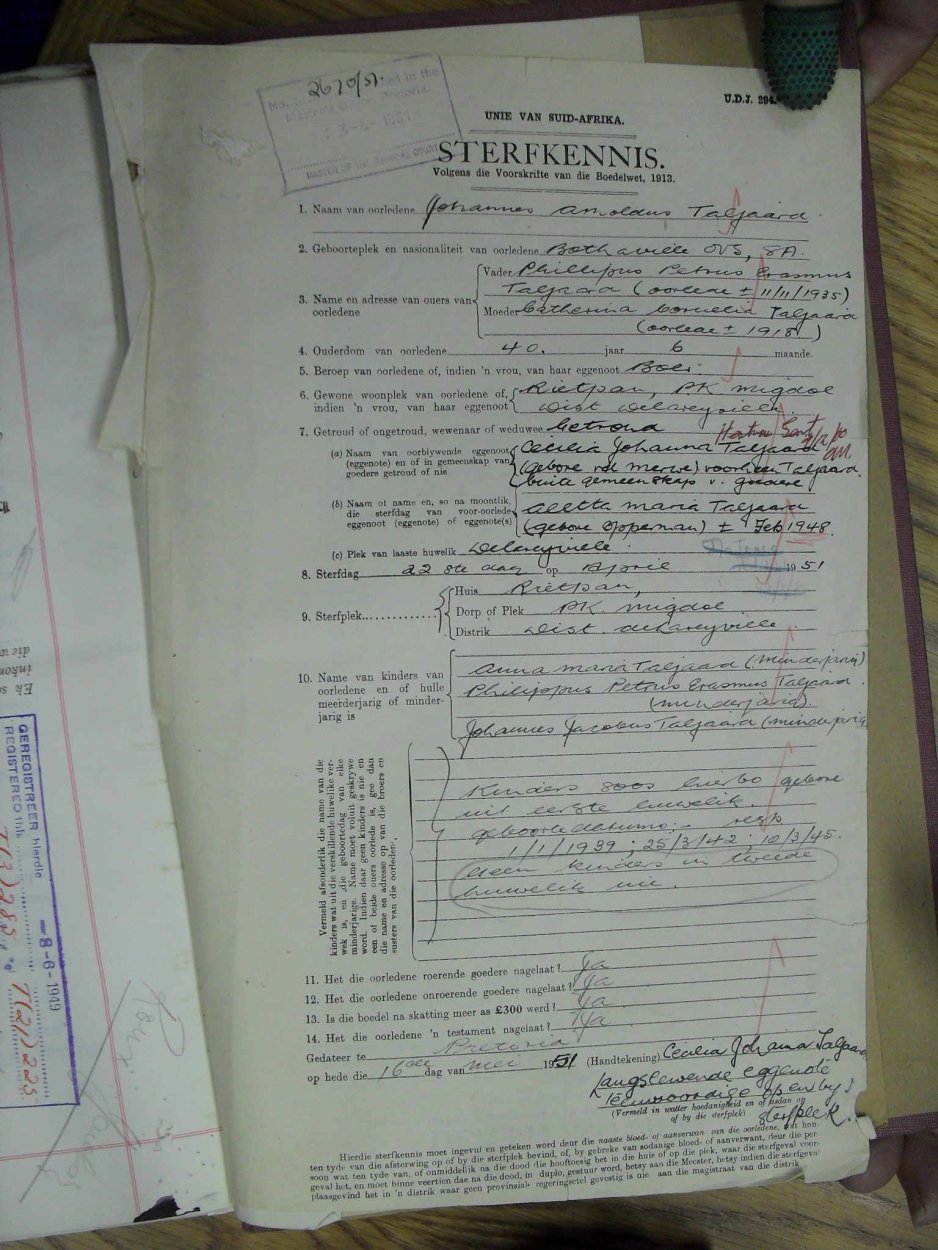 2670/51.
No. ... in the
Master's
MASTER OF THE SUPREME COURT
U.D.J. 294.
UNIE VAN SUID-AFRIKA.
STERFKENNIS.
Volgens die Voorskrifte van die Boedelwet, 1913.
1. Naam van oorledene Johannes Arnoldus Taljaard
2. Geboorteplek en nasionaliteit van oorledene Bothaville OVS, SA.
3. Name en adresse van ouers van oorledene
Vader Phillippus Petrus Erasmus
Taljaard (oorlede ± 11/11/1935)
Moeder Catherina Cornelia Taljaard
(oorlede ± 1918)
4. Ouderdom van oorledene 40. jaar 6 maande.
5. Beroep van oorledene of, indien 'n vrou, van haar eggenoot Boer.
6. Gewone woonplek van oorledene of, Rietpan, PK migdol
indien 'n vrou, van haar eggenoot Dist Delareyville.
7. Getroud of ongetroud, wewenaar of weduwee Getroud
(a) Naam van oorblywende eggenoot Cecilia Johanna Taljaard
(eggenote) en of in gemeenskap van (gebore vd merwe) voorheen Taljaard
goedere getroud of nie buite gemeenskap v. goedere
(b) Naam of name en, so na moontlik, Aletta Maria Taljaard
die sterfdag van voor-oorlede
eggenoot (eggenote) of eggenote(s) (gebore Opperman) ± Feb 1948.
(c) Plek van laaste huwelik Delareyville.
8. Sterfdag 22ste dag op April 1951
9. Sterfplek
Huis Rietpan,
Dorp of Plek PK. migdol
Distrik Dist. delareyville.
10. Name van kinders van
oorledene en of hulle
meerderjarig of minder-
jarig is
Anna Maria Taljaard (minderjarig)
Phillippus Petrus Erasmus Taljaard
(minderjarig).
Johannes Jacobus Taljaard (minderjarig
Vermeld afsonderlik die name van die
kinders wat uit die verskillende huwelike ver-
wek is, en die geboortedag van elke
minderjarige. Name moet voluit geskrywe
word. Indien daar geen kinders is nie en
een of beide ouers oorlede is, gee dan
die name en adresse op van die broers en
susters van die oorledene.
Kinders soos hierbo gebore
uit eerste huwelik.
geboortedatums:- resp
1/1/1939; 25/3/42; 10/3/45.
Geen kinders in tweede
huwelik nie.
11. Het die oorledene roerende goedere nagelaat? Ja
12. Het die oorledene onroerende goedere nagelaat? Ja
13. Is die boedel na skatting meer as £300 werd? Ja
14. Het die oorledene 'n testament nagelaat? Ja
Gedateer te Pretoria
op hede die 16de dag van Mei 1951 (Handtekening) Cecilia Johanna Taljaard
Langslewende eggenote
teenwoordige op en by
(Vermeld in watter hoedanigheid en of aldan op
of by die sterfplek) sterfplek.
Hierdie sterfkennis moet ingevul en geteken word deur die naaste bloed- of aanverwan van die oorledene,
ten tyde van die afsterwing op of by die sterfplek bevind, of, by gebreke van sodanige bloed- of aanverwant, deur die per-
soon wat ten tyde van, of onmiddellik na die dood die hooftoesig het in die huis of op die plek, waar die sterfgeval voor-
geval het, en moet binne veertien dae na die dood, in duplo, gestuur word, hetsy aan die Meester, hetsy indien die sterfgeval
plaasgevind het in 'n distrik waar geen provinsiale regeringsetel gevestig is nie, aan die magistraat van die distrik
GEREGISTREER hierdie
REGISTERED this
-8-6-1949